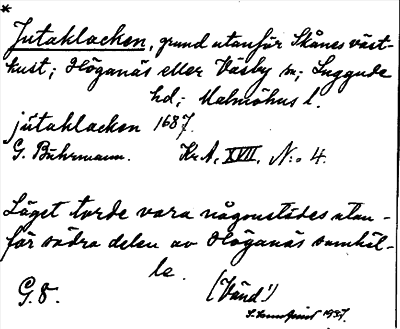 *
Jutaklacken, grund utanför Skånes väst-
kust; Höganäs eller Väsby sn; Luggude
hd; Malmöhus l.
jutaklacken 1687.
G. Buhrmann. Kr. A. XVII. N:o 4.
Läget torde vara någonstädes utan-
för södra delen av Höganäs samhäl-
le.
G. 8. (Vänd!)
1937.